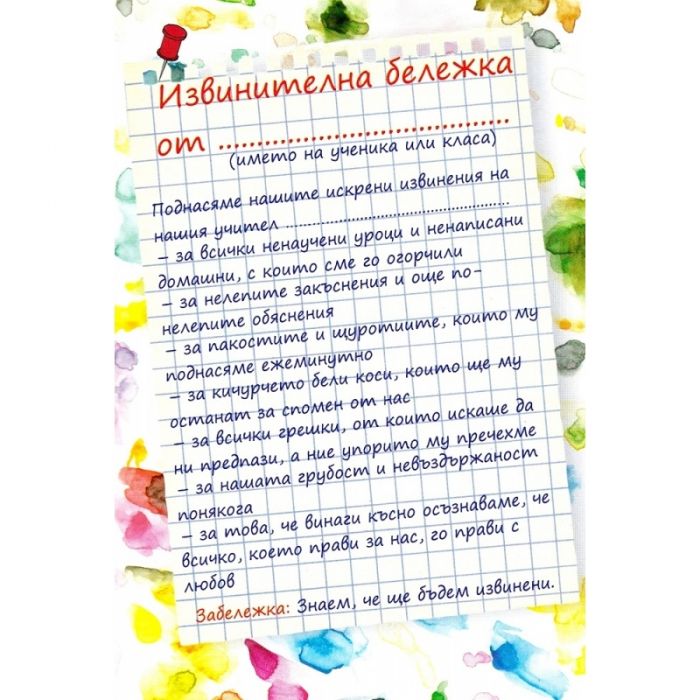 Извинителна бележка
от ........................................
(името на ученика или класа)
Поднасяме нашите искрени извинения на
нашия учител ................................................
– за всички ненаучени уроци и ненаписани
домашни, с които сме го огорчили
– за нелепите закъснения и още по-
нелепите обяснения
– за пакостите и щуротиите, които му
поднасяме ежеминутно
– за кичурчето бели коси, които ще му
останат за спомен от нас
– за всички грешки, от които искаше да
ни предпази, а ние упорито му пречехме
– за нашата грубост и невъздържаност
понякога
– за това, че винаги късно осъзнаваме, че
всичко, което прави за нас, го прави с
любов
Забележка: Знаем, че ще бъдем извинени.